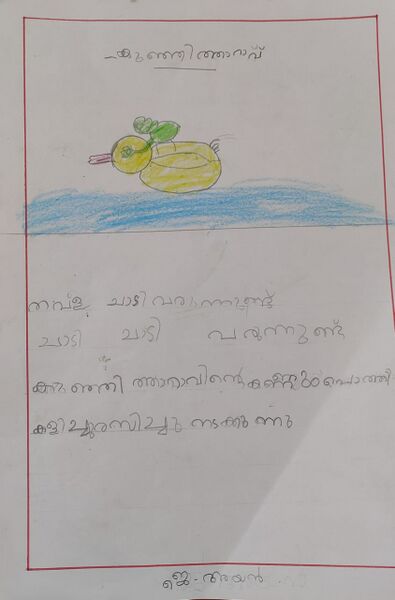 കുഞ്ഞിത്താറാവ്
തവള ചാടി വരുന്നുണ്ട്
ചാടി ചാടി വരുന്നുണ്ട്
കുഞ്ഞി താറാവിന്റെ കണ്ണുംപൊത്തി
കളിച്ചുരസിച്ചു നടക്കുന്നു
ജെ. അയൻ